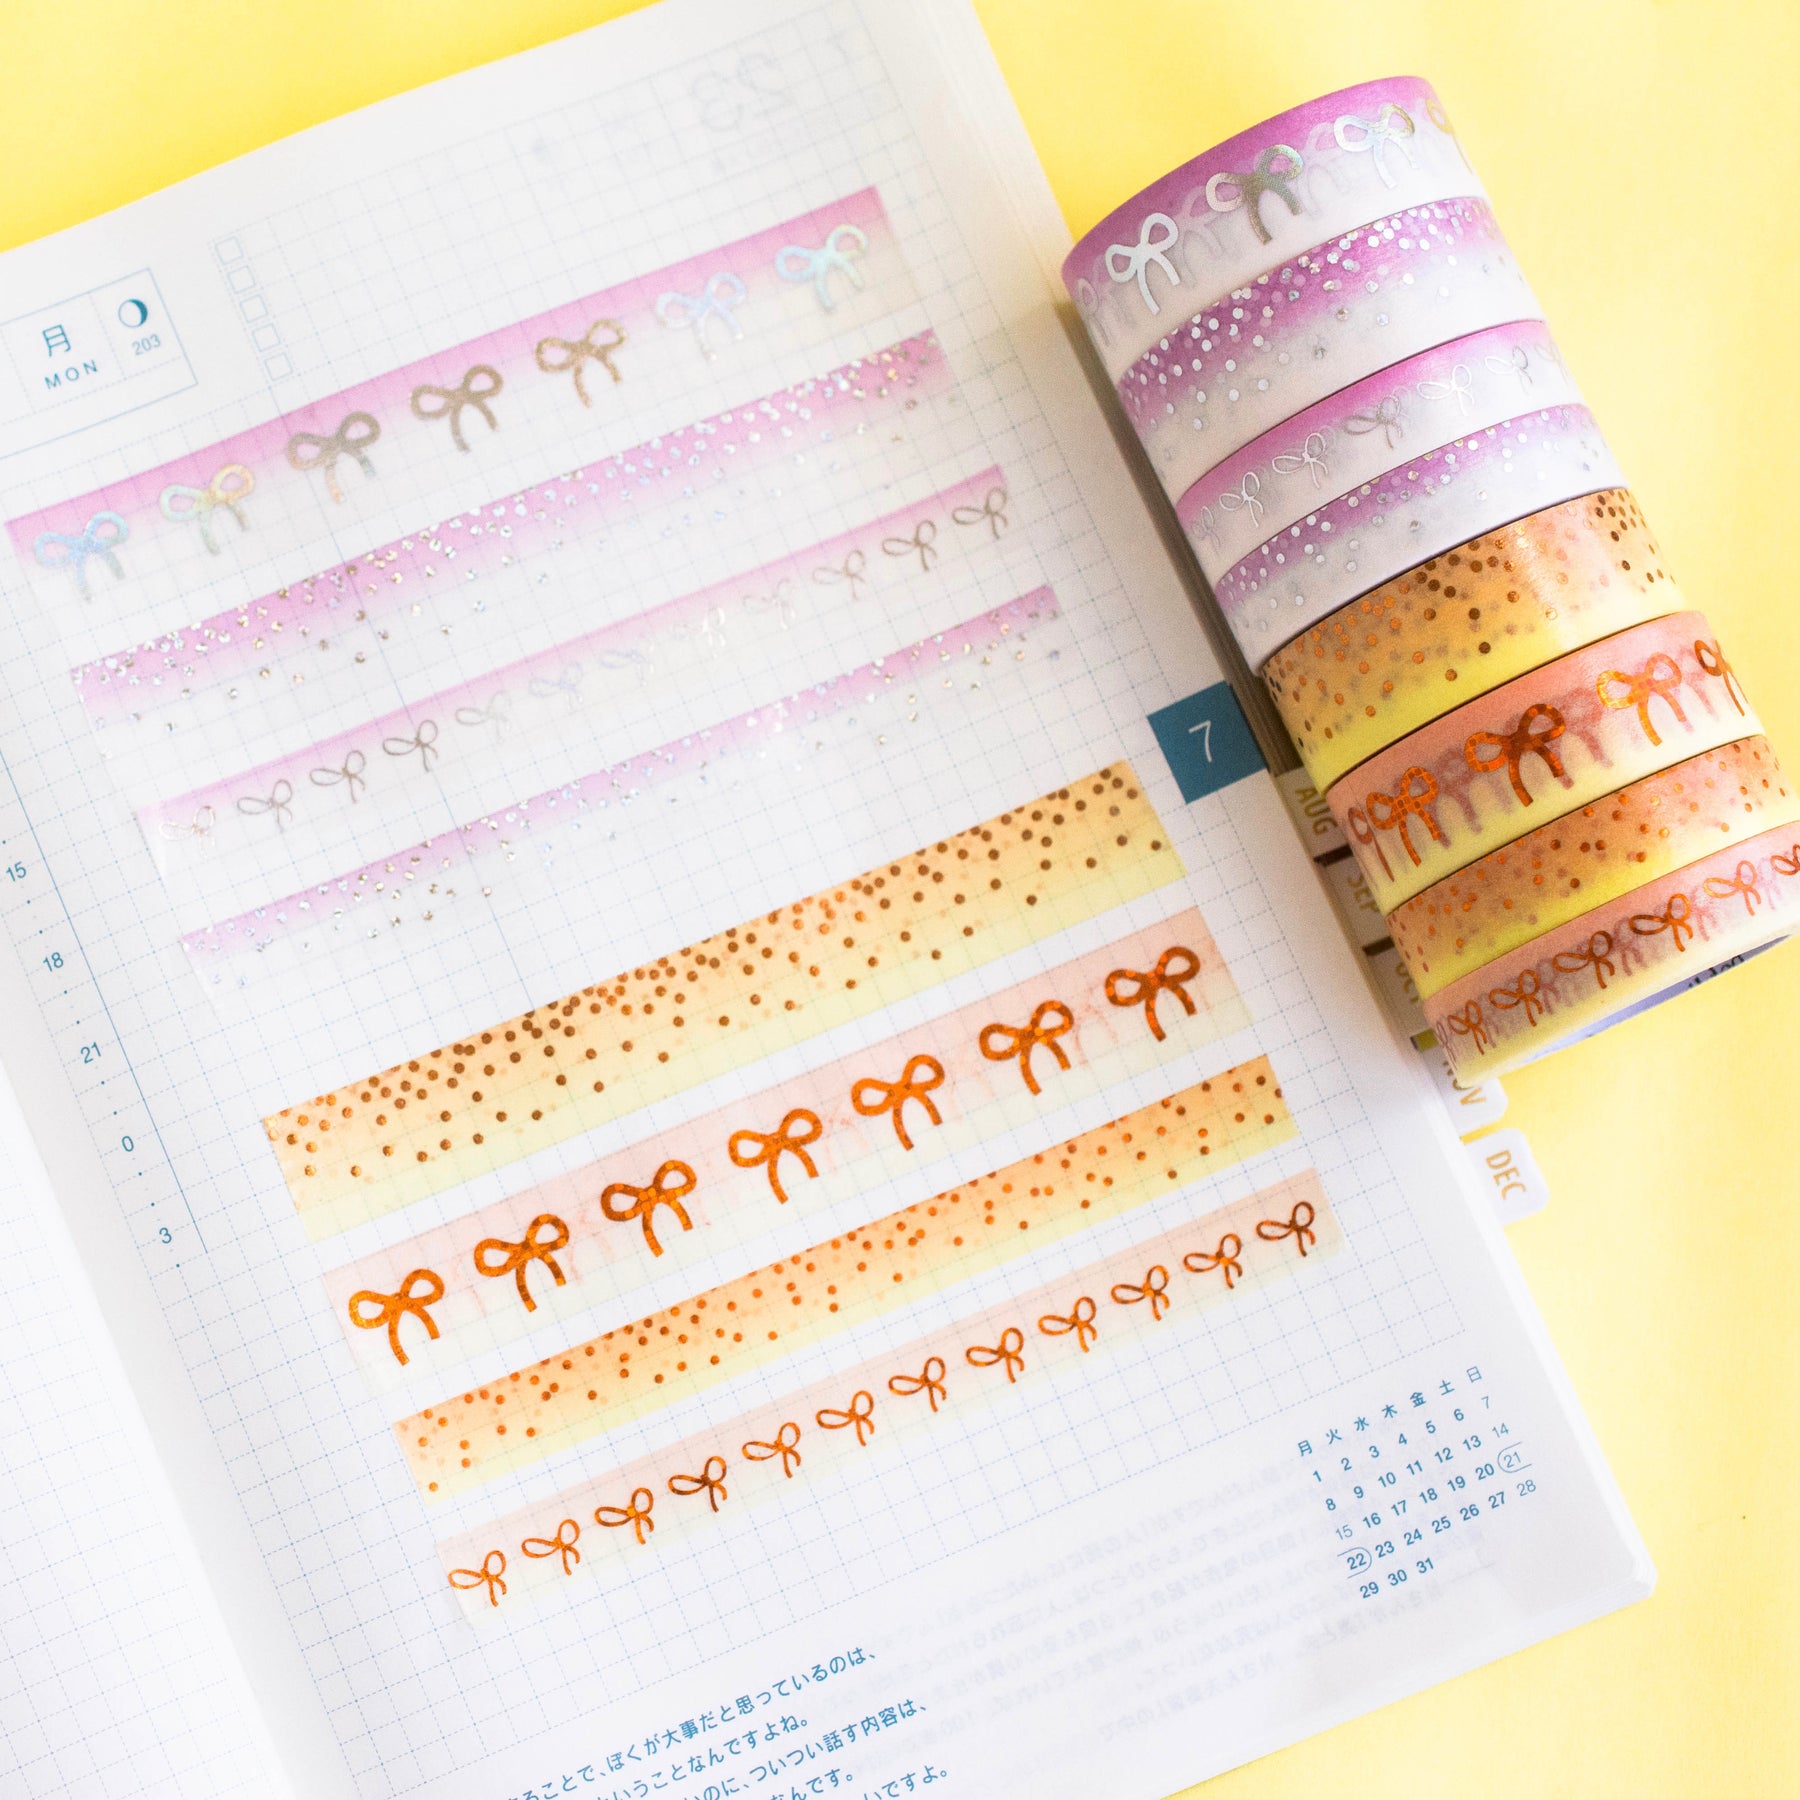 月
MON
203
15
18
21
0
3
7
AUG
SEP
NOV
DEC
月 火 水 木 金 土 日
1 2 3 4 5 6 7
8 9 10 11 12 13 14
15 16 17 18 19 20 21
22 23 24 25 26 27 28
29 30 31
ることで、ぼくが大事だと思っているのは、
いうことなんですよね。
のに、ついつい話す内容は、
なんです。
いですよ。